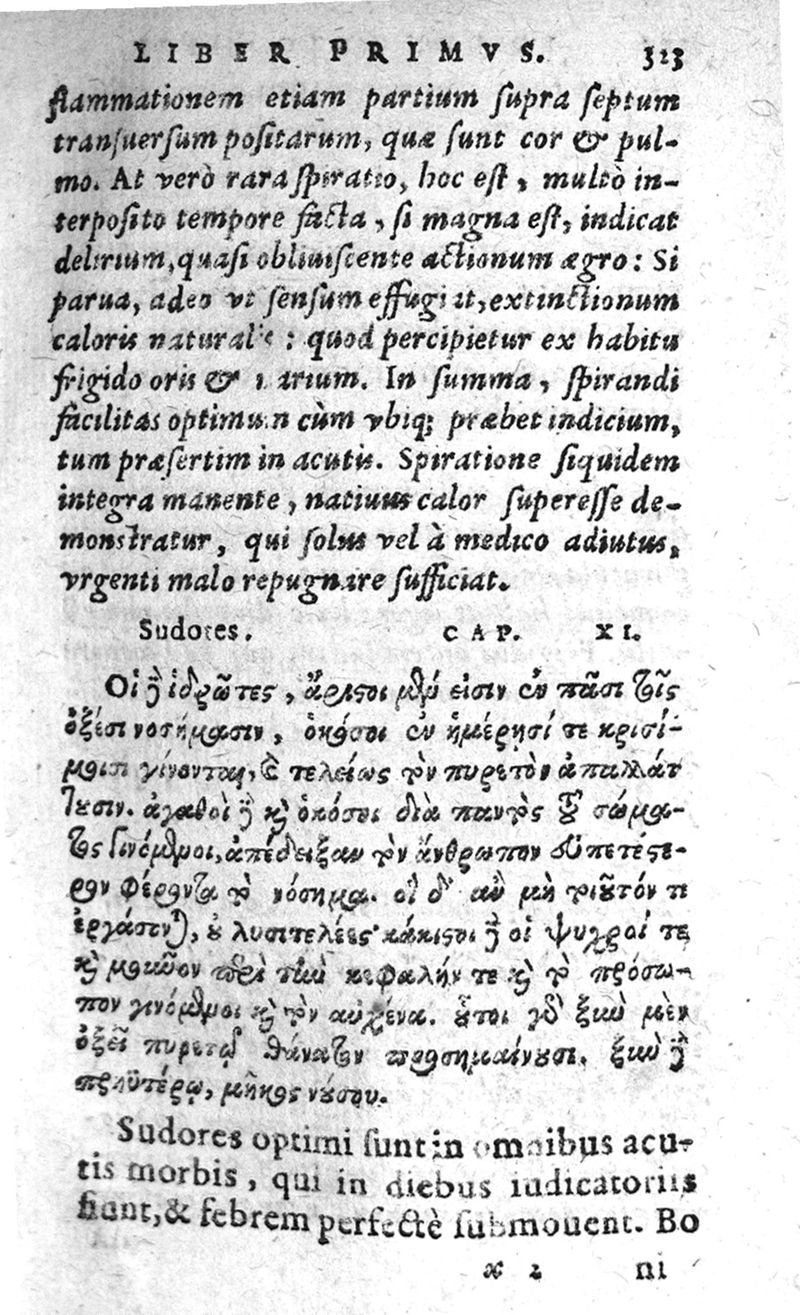 LIBER PRIMVS. 323
flammationem etiam partium supra septum
transuersum positarum, quæ sunt cor & pul-
mo. At verò rara spiratio, hoc est, multò in-
terposito tempore facta, si magna est, indicat
delirium, quasi obliuiscente actionum ægro: Si
parua, adeo vt sensum effugiat, extinctionum
caloris naturalis: quod percipietur ex habitu
frigido oris & narium. In summa, spirandi
facilitas optimum cùm vbiq; præbet indicium,
tum præsertim in acutis. Spiratione siquidem
integra manente, natiuus calor superesse de-
monstratur, qui solus vel à medico adiutus,
vrgenti malo repugnare sufficiat.
Sudores. CAP. XI.
Οἱ δὲ ἱδρῶτες, ἄριστοι μέν εἰσιν ἐν πᾶσι τοῖς
ὀξέσι νοσήμασιν, ὁκόσοι ἐν ἡμέρῃσί τε κρισί-
μοισι γίνονται, καὶ τελείως τὸν πυρετὸν ἀπαλλάτ
τουσιν. ἀγαθοὶ δὲ καὶ ὁκόσοι διὰ παντὸς τοῦ σώμα-
τος γινόμενοι, ἀπέδειξαν τὸν ἄνθρωπον εὐπετέστε-
ρον φέροντα τὸ νόσημα. οἳ δ' ἂν μὴ τοιοῦτόν τι
ἐργάσωνται, οὐ λυσιτελέες· κάκιστοι δὲ οἱ ψυχροί τε
καὶ μοῦνον περὶ τὴν κεφαλήν τε καὶ τὸ πρόσω-
πον γινόμενοι καὶ τὸν αὐχένα. οὗτοι γὰρ ξὺν μὲν
ὀξεῖ πυρετῷ θάνατον προσημαίνουσι. ξὺν δὲ
πρηϋτέρῳ, μῆκος νούσου.
Sudores optimi sunt in omnibus acu-
tis morbis, qui in diebus iudicatoriis
fiunt, & febrem perfectè submouent. Bo
x 2 ni